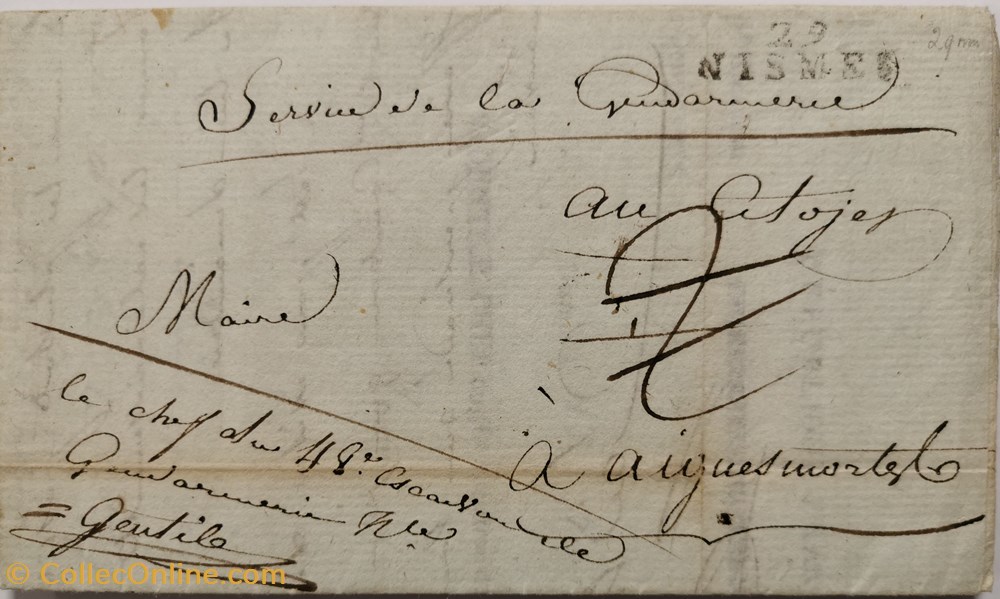 29
29 mm
NISMES
Service de la Gendarmerie
au Citoyen
Maire
à aiguesmortes
le chef du 48.e Escadron de
Gendarmerie Nle
= Gentile
© CollecOnline.com